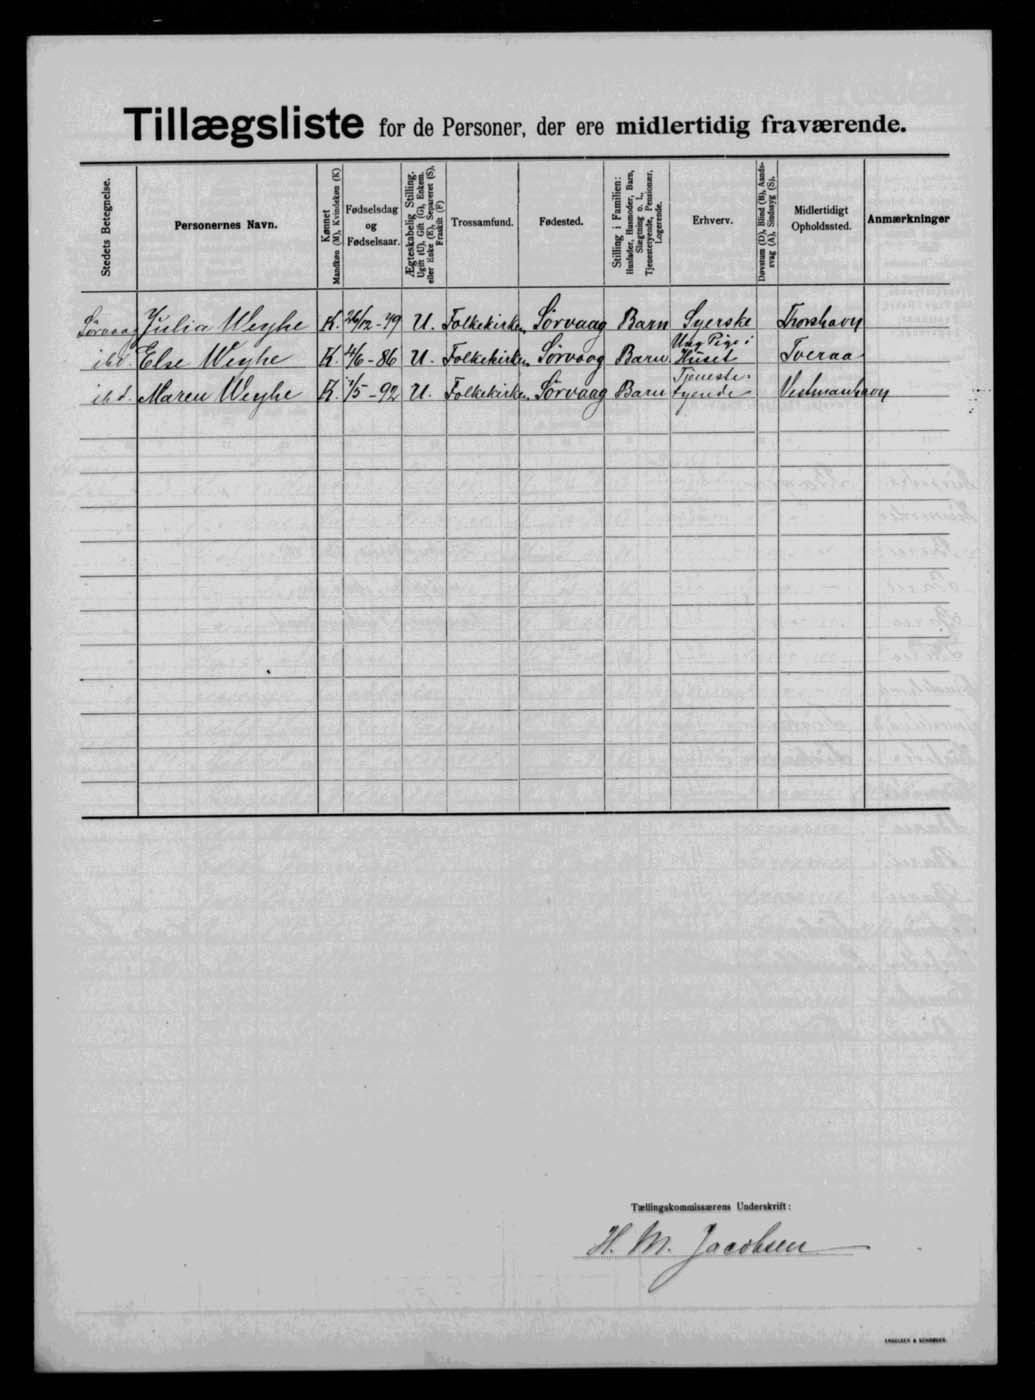 Tillægsliste for de Personer, der ere midlertidig fraværende.
Stedets Betegnelse.
Personernes Navn.
Kønnet
Mandkøn (M), Kvindekøn (K)
Fødselsdag
og
Fødselsaar.
Ægteskabelig Stilling.
Ugift (U), Gift (G), Enkem.
eller Enke (E), Separeret (S),
Fraskilt (F)
Trossamfund.
Fødested.
Stilling i Familien:
Husfader, Husmoder, Barn,
Slægtning o. l.,
Tjenestetyende, Pensionær,
Logerende.
Erhverv.
Døvstum (D), Blind (B), Aands-
svag (A), Sindssyg (S).
Midlertidigt
Opholdssted.
Anmærkninger
Sørvaag Julia Weyhe K. 26/12-79 U. Folkekirken Sørvaag Barn Syerske Thorshavn
ibd. Else Weyhe K. 4/6-86 U. Folkekirken Sørvaag Barn Ung Pige i Huset Tveraa
ibd. Maren Weyhe K. /5-92 U. Folkekirken Sørvaag Barn Tjenestetyende Vestmanhavn
Tællingskommissærens Underskrift:
H. M. Jacobsen